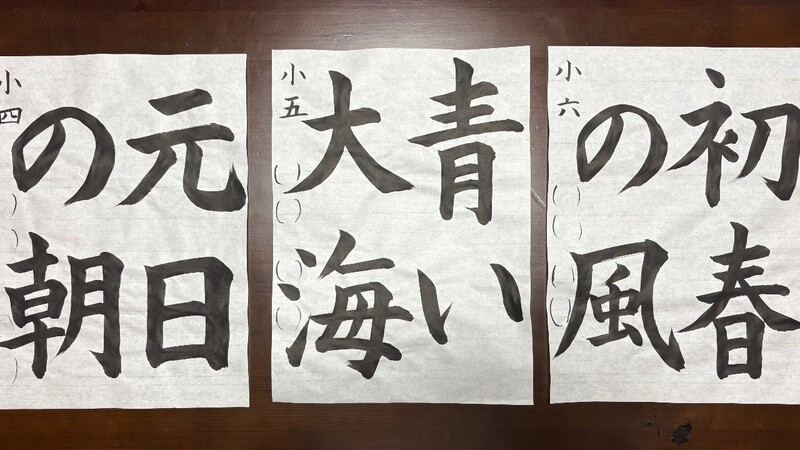 元日
の朝
小四
青い
大海
小五
初春
の風
小六